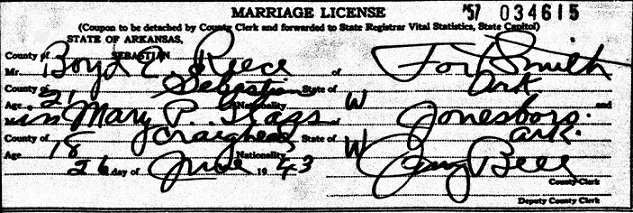 MARRIAGE LICENSE '57 034615
(Coupon to be detached by County Clerk and forwarded to State Registrar Vital Statistics, State Capitol)
STATE OF ARKANSAS,
County of SEBASTIAN
Mr. Boyd E. Reece of Fort Smith
County of Sebastian State of Ark
Age 21 Nationality W and
Miss Mary P. of Jonesboro.
County of Craighead State of Ark.
Age 18 Nationality W
26 day of June 1943
County Clerk
Deputy County Clerk